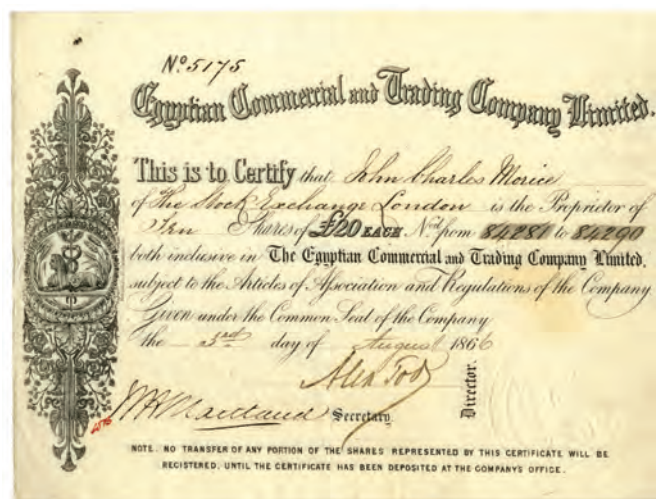 No. 5175
Egyptian Commercial and Trading Company Limited.
This is to Certify that John Charles Morice
of The Stock Exchange London is the Proprietor of
Ten Shares of £20 EACH Nod. from 84281 to 84290
both inclusive in The Egyptian Commercial and Trading Company Limited,
subject to the Articles of Association and Regulations of the Company
Given under the Common Seal of the Company
the 3rd day of August 1866
Alex Tod
Director.
Maitland Secretary.
NOTE. NO TRANSFER OF ANY PORTION OF THE SHARES REPRESENTED BY THIS CERTIFICATE WILL BE
REGISTERED, UNTIL THE CERTIFICATE HAS BEEN DEPOSITED AT THE COMPANY'S OFFICE.